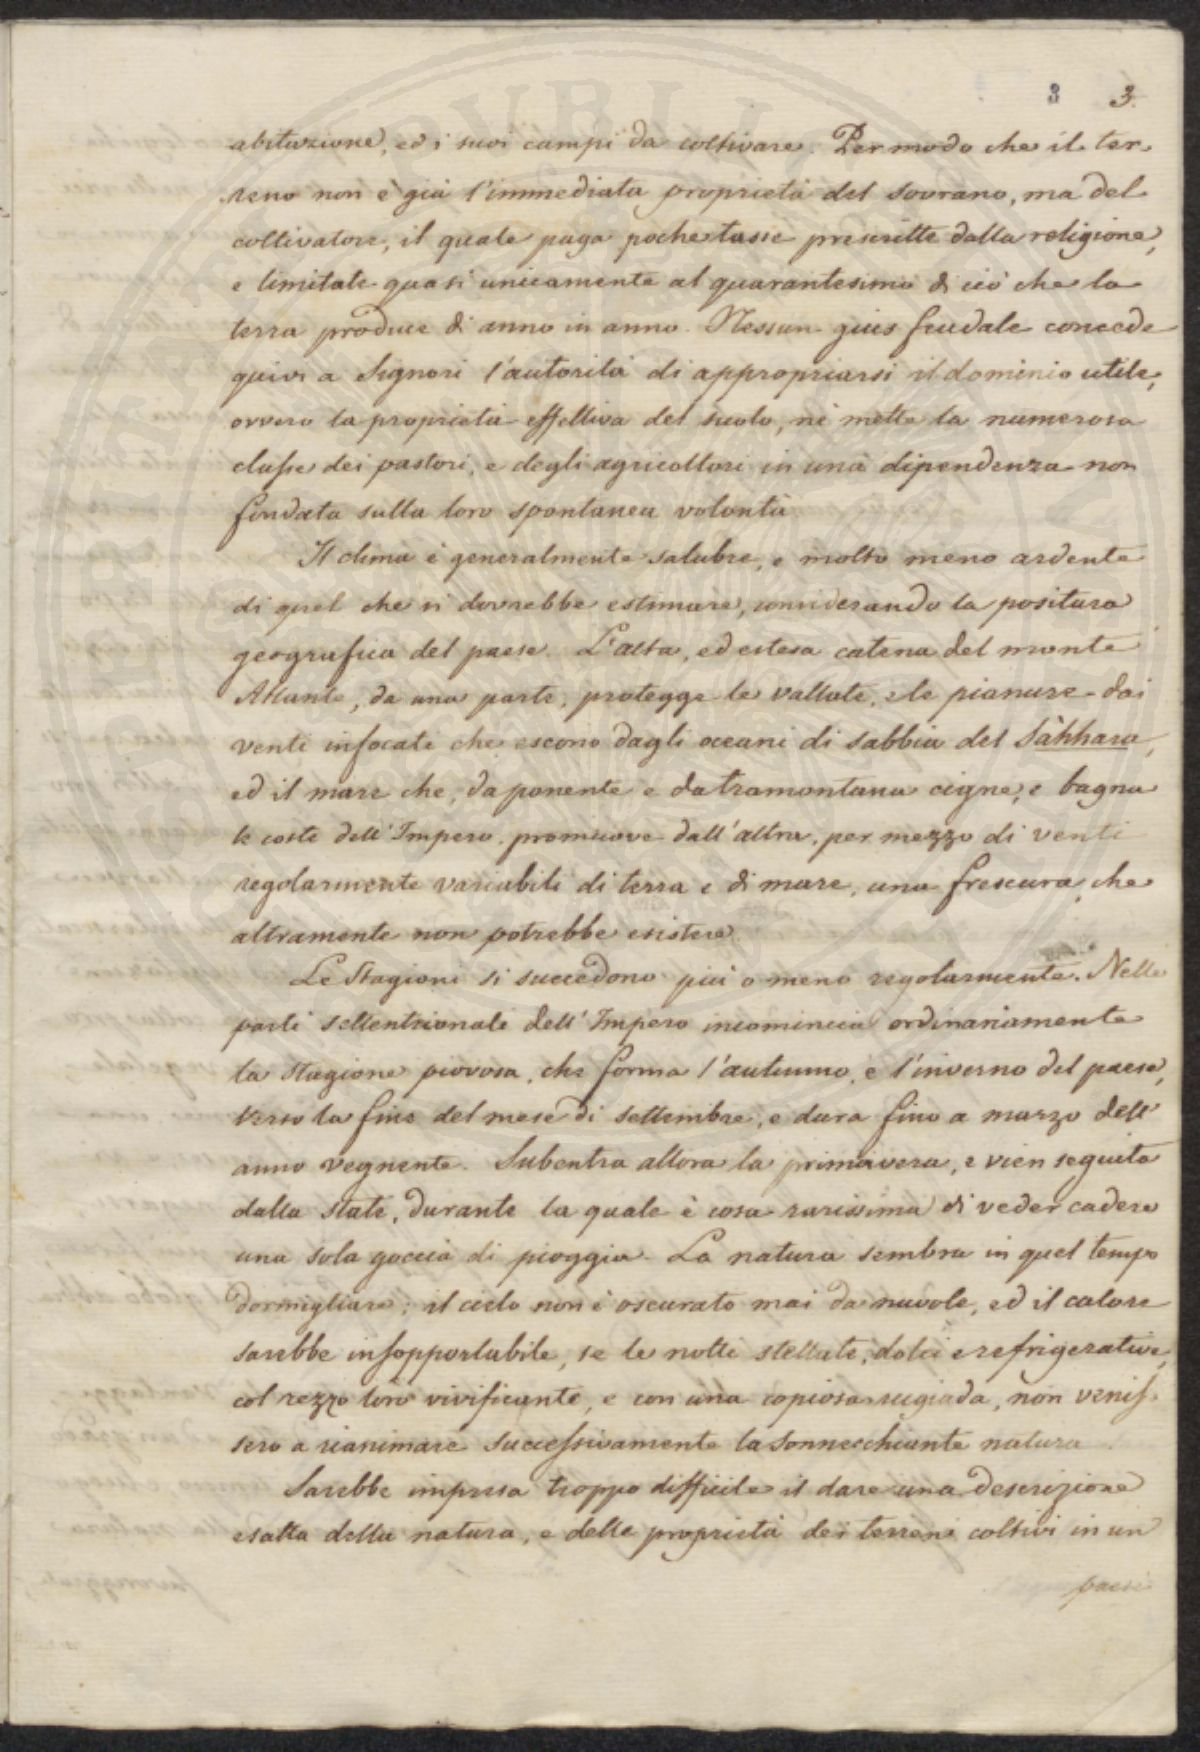 3 3.
abitazione, ed i suoi campi da coltivare. Per modo che il ter-
reno non è già l'immediata proprietà del sovrano, ma del
coltivatore, il quale paga poche tasse prescritte dalla religione,
e limitate quasi unicamente al quarantesimo di ciò che la
terra produce di anno in anno. Nessun gius feudale concede
quivi a Signori l'autorità di appropriarsi il dominio utile,
ovvero la proprietà effettiva del suolo, nè mette la numerosa
classe dei pastori, e degli agricoltori in una dipendenza non
fondata sulla loro spontanea volontà
Il clima è generalmente salubre, e molto meno ardente
di quel che si dovrebbe estimare, considerando la positura
geografica del paese. L'alta, ed estesa catena del monte
Atlante, da una parte, protegge le vallate, e le pianure dai
venti infocati che escono dagli oceani di sabbia del Sàhhara,
ed il mare che, da ponente e da tramontana cigne, e bagna
le coste dell'Impero, promuove dall'altra, per mezzo di venti
regolarmente variabili di terra e di mare, una frescura, che
altramente non potrebbe esistere
Le Stagioni si succedono più o meno regolarmente. Nelle
parti settentrionali dell'Impero incomincia ordinariamente
la stagione piovosa, che forma l'autunno, e l'inverno del paese,
verso la fine del mese di settembre, e dura fino a marzo dell'
anno vegnente. Subentra allora la primavera, e vien seguita
dalla state, durante la quale è cosa rarissima di veder cadere
una sola goccia di pioggia. La natura sembra in quel tempo
dormigliare; il cielo non è oscurato mai da nuvole, ed il calore
sarebbe insopportabile, se le notti stellate, dolci e refrigerative,
col rezzo loro vivificante, e con una copiosa rugiada, non venis-
sero a rianimare successivamente la sonnecchiante natura
Sarebbe impresa troppo difficile il dare una descrizione
esatta della natura, e delle proprietà dei terreni coltivi in un
paese